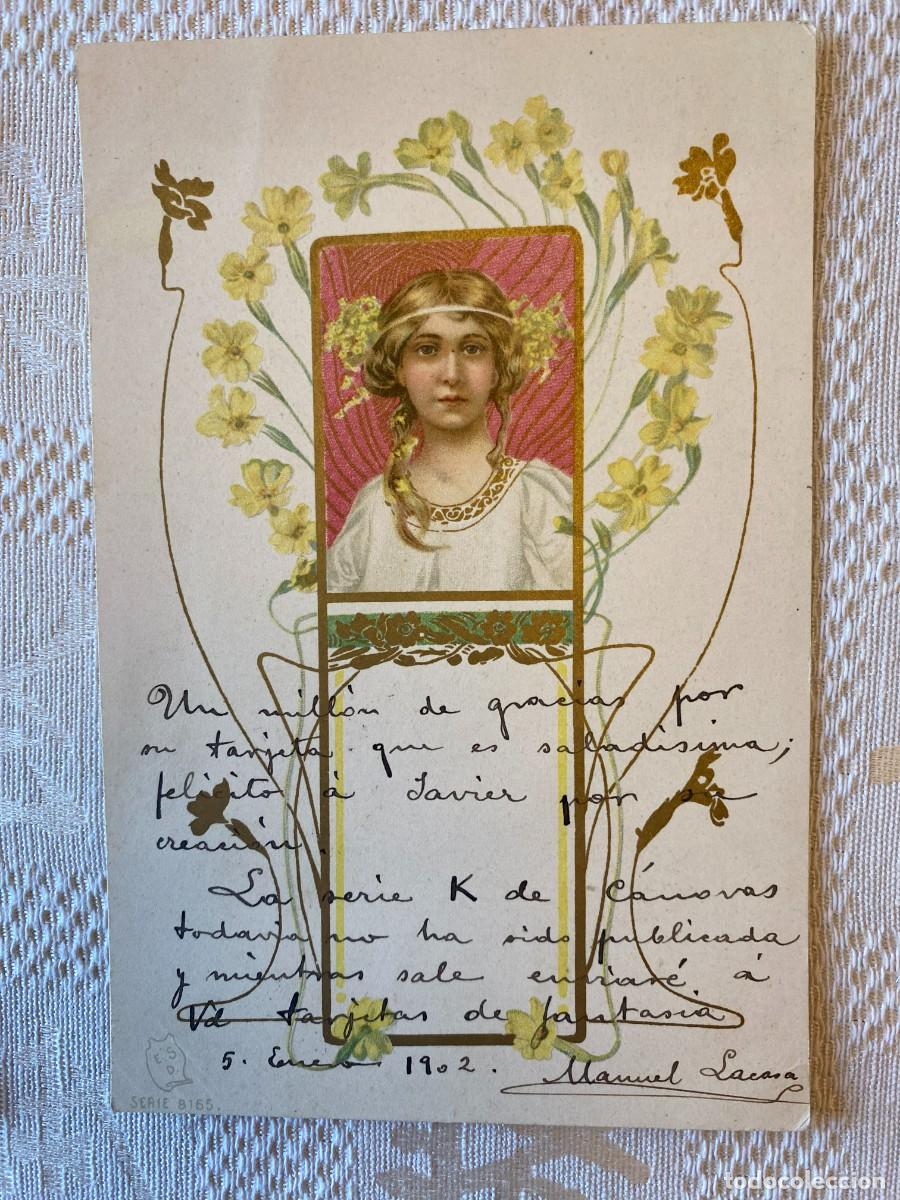 Un millón de gracias por
su tarjeta que es saladisima;
felicito á Javier por su
creación.
La serie K de Cánovas
todavia no ha sido publicada
y mientras sale enviaré á
Vd tarjetas de fantasia
5. Enero 1902.
Manuel Lacasa
E.S.
D.
SERIE 8165.
todocoleccion